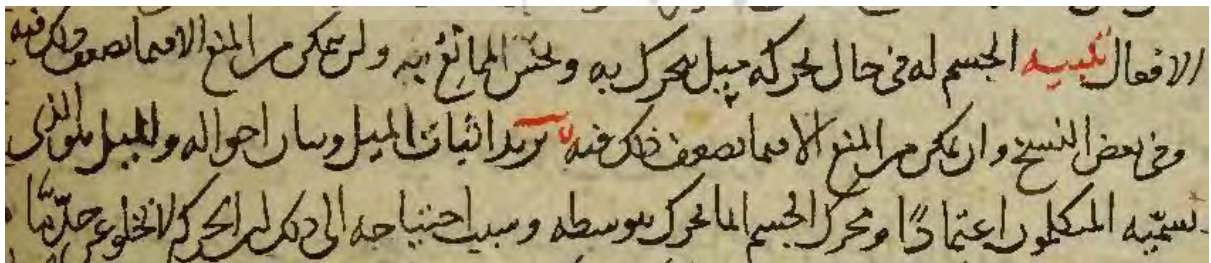 الافعال تنبيه الجسم له في حال تحركه ميل يتحرك به ويحس الممانع به ولن يتمكن من المنع الا فيما يضعف ذلك فيه
وفي بعض النسخ وان تمكن من المنع الا فيما يضعف ذلك فيه يريد اثبات الميل وبيان احواله والميل هو الذي
يسميه المتكلمون اعتمادًا ومحرك الجسم انما يحرك بتوسطه وسبب احتياجه الى ذلك ان الحركة لا تخلو عن حدّ مّا